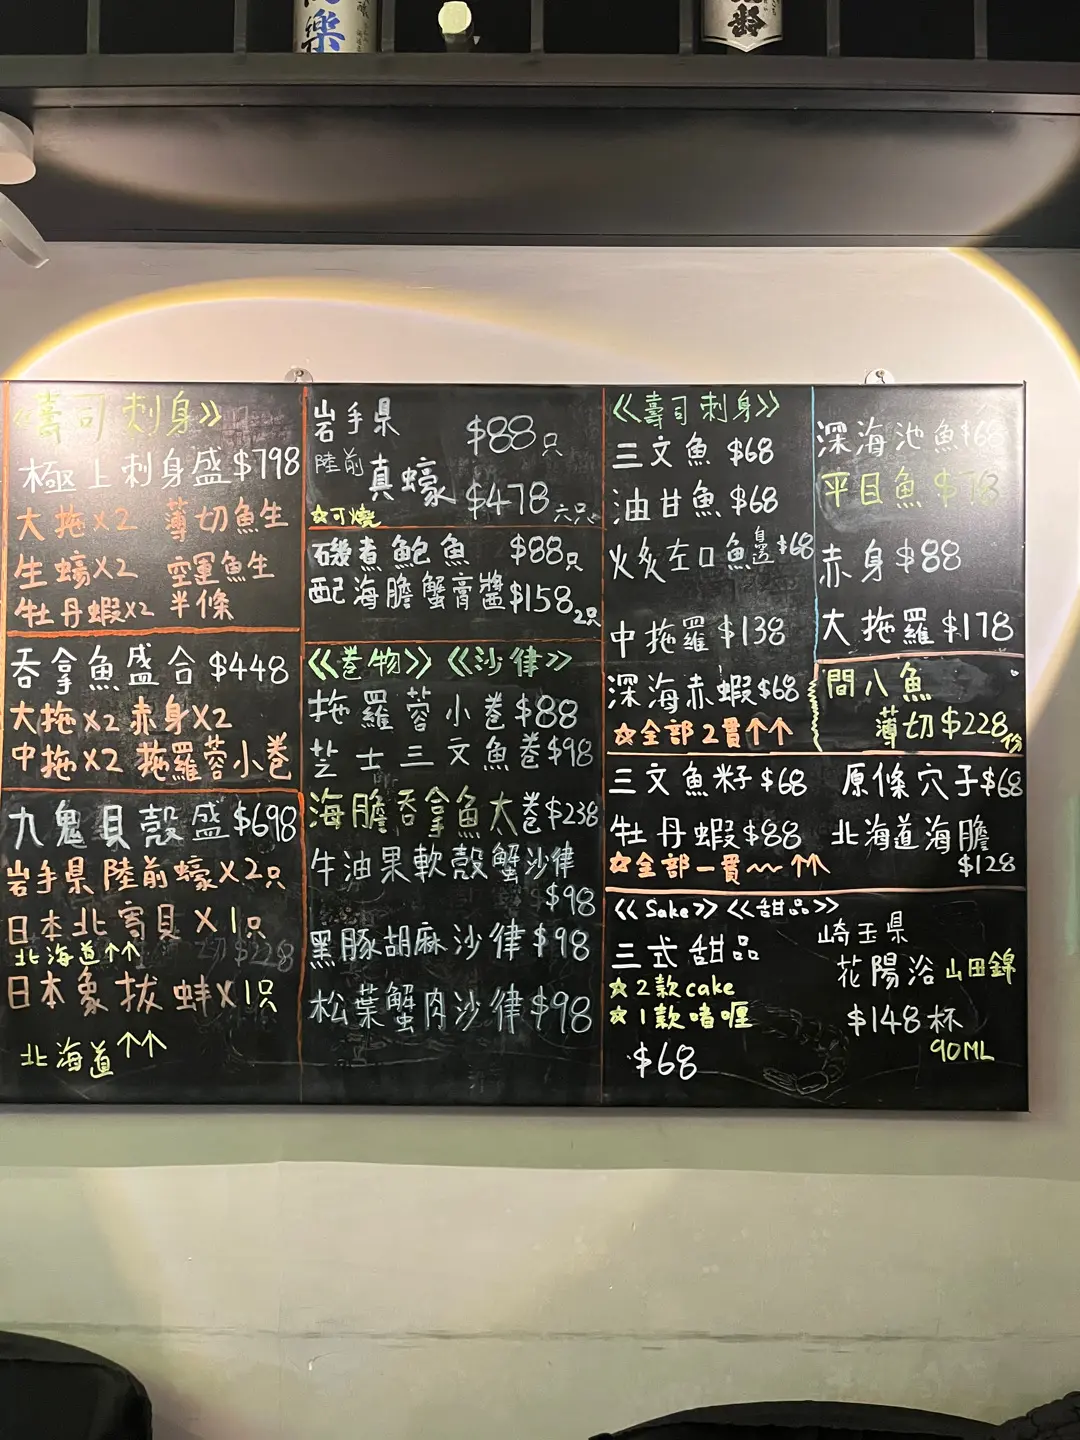 樂
齡
《壽司刺身》
極上刺身盛$798
大拖X2 薄切魚生
生蠔X2 空運魚生
牡丹蝦X2 半條
吞拿魚盛合$448
大拖X2 赤身X2
中拖X2 拖羅蓉小卷
九鬼貝殼盛$698
岩手県陸前蠔X2只
日本北寄貝X1只
北海道↑↑
切$228
日本象拔蚌X1只
北海道↑↑
岩手県 $88只
陸前
真蠔 $478六只
☆可燒
磯煮鮑魚 $88只
配海膽蟹膏醬$158 2只
《卷物》《沙律》
拖羅蓉小卷$88
芝士三文魚卷$98
海膽吞拿魚太卷$238
牛油果軟殼蟹沙律
$98
黑豚胡麻沙律$98
松葉蟹肉沙律$98
《壽司刺身》
三文魚 $68
油甘魚 $68
火炙左口魚邊$68
中拖羅$138
深海赤蝦$68
☆全部2貫↑↑
深海池魚$68
平目魚$78
赤身$88
大拖羅$178
問八魚
薄切$228份
三文魚籽$68 原條穴子$68
牡丹蝦$88 北海道海膽
$128
☆全部一貫~~↑↑
《Sake》《甜品》
三式甜品
☆2款cake
☆1款啫喱
$68
崎玉県
花陽浴 山田錦
$148杯
90ML